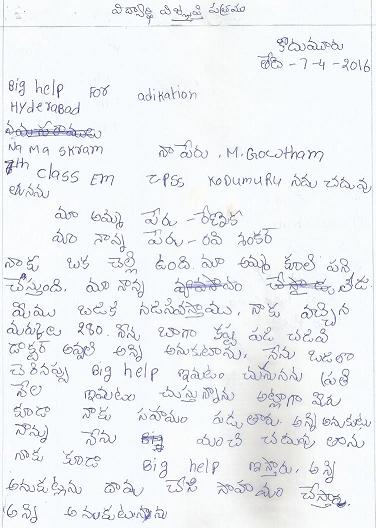 విద్యార్థి విజ్ఞప్తి పత్రము
కొదుమూరు
తేది -7-4-2016
Big help For adikation
Hyderabad
Na Ma skram నా పేరు. M. Gowtham
7th class EM ZPSS KODUMURU నదు చదువు
తునను
మా అమ్మ పేరు - రేణుక
మా నాన్న పేరు - రవి శంకర్
నాకు ఒక చెల్లి ఉంది. మా అమ్మ కూలి పని
చేస్తుంది. మా నాన్న లేడు.
మేము బడికి నడిసివస్తాము, నాకు వచ్చిన
మార్కులు 280. నేను బాగా కష్ట పడి చదివి
డాక్టర్ అవ్వాలి అన్ని అనుకుటాను, నేను బడిలో
చెరినప్పు Big help ఇవటం చుసునను ప్రతి
నేల ఇవటం చుస్తున్నాను అట్లాగా
కూడా నాకు సహాయం పడు తారు. అన్ని అనుకుటు
న్నాన్ను నేను మంచి చదువు తాను
నాకు కూడా Big help ఇస్తారు, అన్ని
అనుకుట్లను దాయ చేసి సాహాయం చేస్తారు
అన్ని అనుకుటున్నాను